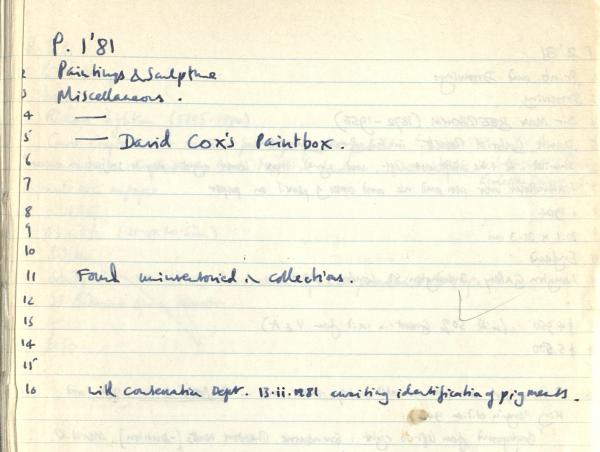 P. 1'81
2 Paintings & Sculpture
3 Miscellaneous.
4 —
5 — David Cox's Paintbox.
6
7
8
9
10
11 Found uninventoried in collections.
12
13
14
15
16 with Conservation Dept. 13.ii.1981 awaiting identification of pigments.